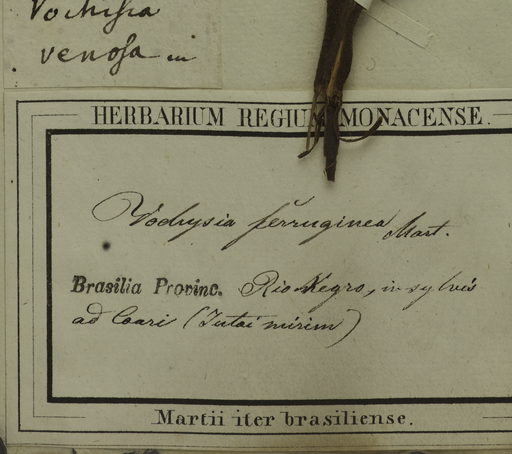 Vochisia
venosa m
HERBARIUM REGIUM MONACENSE.
Vochysia ferruginea Mart.
Brasilia Provinc. Rio Negro, in sylvis
ad Coari (Jutaí mirim)
Martii iter brasiliense.